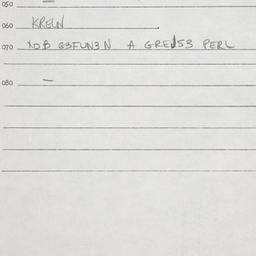 050
060 KRELN
070 NOB G3FUN3N A GRELS3 PERL
080 —